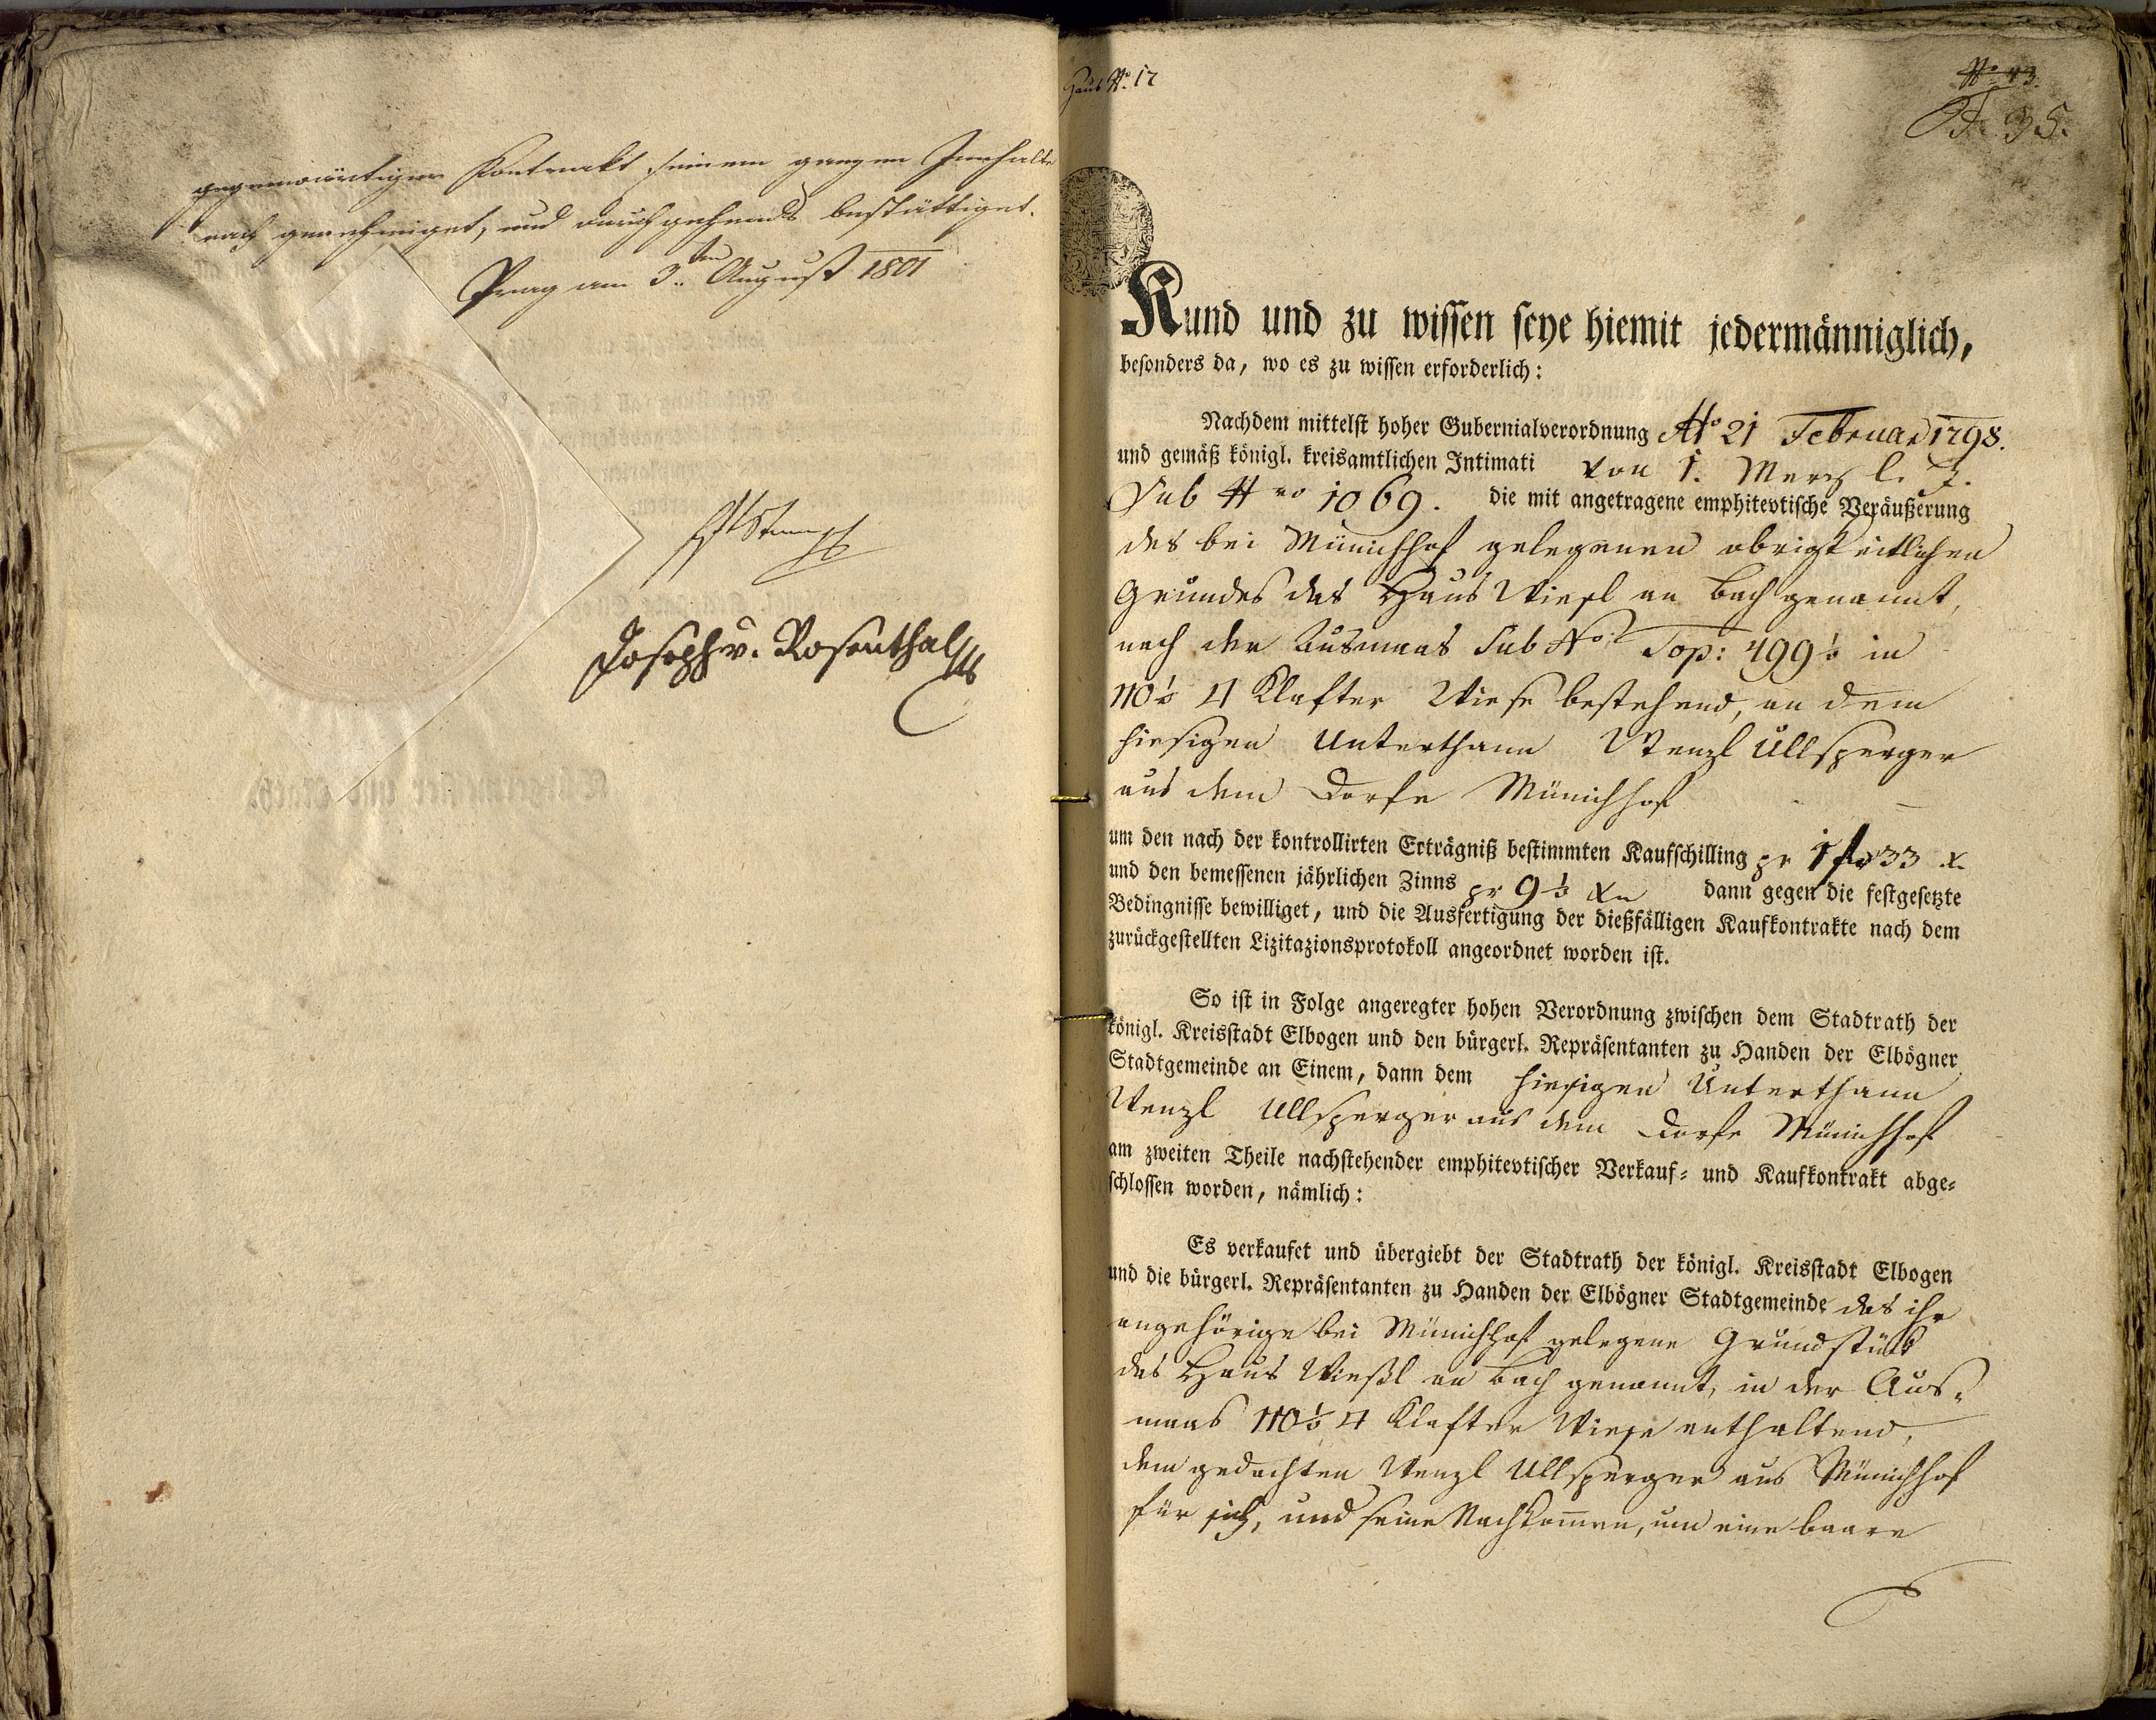 gegenwärtiger Kontrakt seinem ganzen Innhalte
nach genehmiget, und durchgehends bestättiget.
Prag am 3ten August 1801
Joseph v. Rosenthal
Haus No. 17
No 43.
F. 35.
Kund und zu wissen seye hiemit jedermänniglich,
besonders da, wo es zu wissen erforderlich:
Nachdem mittelst hoher Gubernialverordnung No 21 Februar 1798.
und gemäß königl. kreisamtlichen Intimati von 1. Merz l. J.
Sub Nro 1069. die mit angetragene emphitevtische Veräußerung
des bei Münichhof gelegenen obrigkeitlichen
Grundes das Haus Wiesl am Bach genannt,
nach der Ausmaas Sub No: Top: 499 in
110 □ Klafter Wiese bestehend, an dem
hiesigen Unterthann Wenzl Ullsperger
aus dem Dorfe Münichhof
um den nach der kontrollirten Erträgniß bestimmten Kaufschilling pr 1 fl 33 x.
und den bemessenen jährlichen Zinns pr 9 xr dann gegen die festgesetzte
Bedingnisse bewilliget, und die Ausfertigung der dießfälligen Kaufkontrakte nach dem
zurückgestellten Lizitazionsprotokoll angeordnet worden ist.
So ist in Folge angeregter hohen Verordnung zwischen dem Stadtrath der
königl. Kreisstadt Elbogen und den bürgerl. Repräsentanten zu Handen der Elbögner
Stadtgemeinde an Einem, dann dem hiesigen Unterthann
Wenzl Ullsperger aus dem Dorfe Münichhof
am zweiten Theile nachstehender emphitevtischer Verkauf- und Kaufkontrakt abge-
schlossen worden, nämlich:
Es verkaufet und übergiebt der Stadtrath der königl. Kreisstadt Elbogen
und die bürgerl. Repräsentanten zu Handen der Elbögner Stadtgemeinde das ihr
angehörige bei Münichhof gelegene Grundstück
das Haus Wießl am Bach genannt, in der Aus-
maas 110 □ Klafter Wiese enthaltend,
dem gedachten Wenzl Ullsperger aus Münichhof
für sich, und seine Nachkom̄en, um eine baare